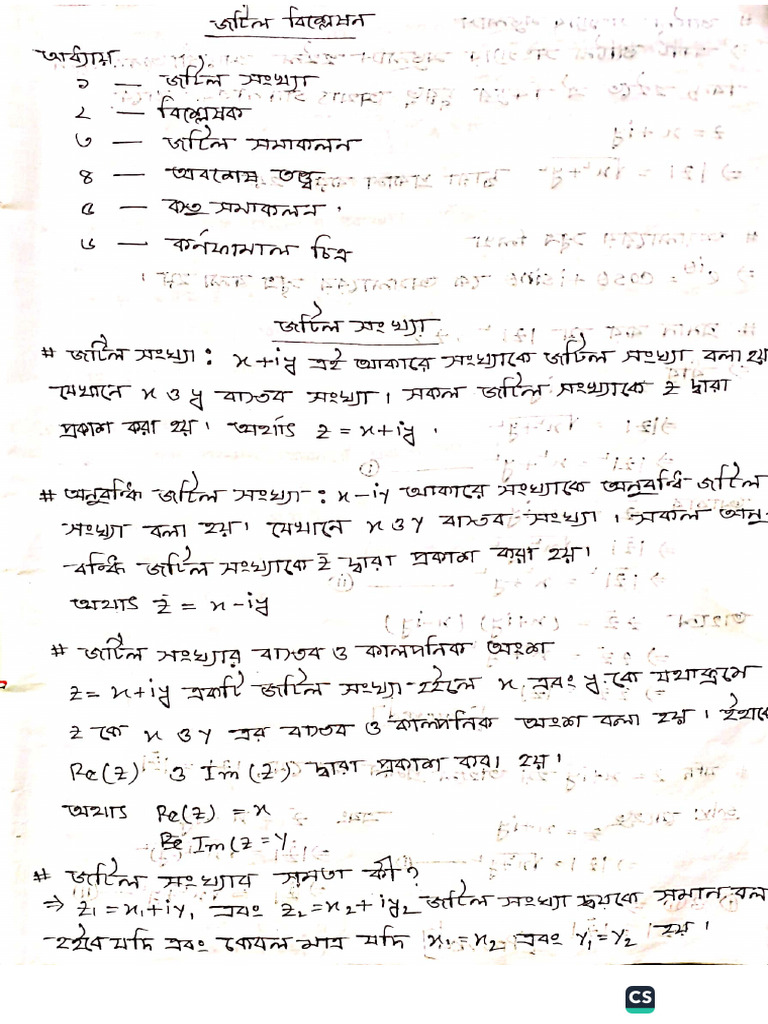 জটিল বিশ্লেষন
অধ্যায়
১ — জটিল সংখ্যা
২ — বিশ্লেষক
৩ — জটিল সমাকলন
৪ — অবশেষ তত্ত্ব
৫ — কন্তু সমাকলন
৬ — কনফামাল চিত্র
জটিল সংখ্যা
# জটিল সংখ্যা : x+iy এই আকারে সংখ্যাকে জটিল সংখ্যা বলা হয়
যেখানে x ও y বাস্তব সংখ্যা । সকল জটিল সংখ্যাকে z দ্বারা
প্রকাশ করা হয় । অর্থাৎ z = x+iy .
# অনুবন্ধি জটিল সংখ্যা : x-iy আকারে সংখ্যাকে অনুবন্ধি জটিল
সংখ্যা বলা হয় । যেখানে x ও y বাস্তব সংখ্যা । সকল অনু-
বন্ধি জটিল সংখ্যাকে z̄ দ্বারা প্রকাশ করা হয় ।
অথাৎ z̄ = x-iy
# জটিল সংখ্যার বাস্তব ও কাল্পনিক অংশ
z = x+iy একটি জটিল সংখ্যা হইলে x এবং y কে যথাক্রমে
z কে x ও y এর বাস্তব ও কাল্পনিক অংশ বলা হয় । ইহাকে
Re(z) ও Im(z) দ্বারা প্রকাশ করা হয় ।
অথাৎ Re(z) = x
Im(z = y
# জটিল সংখ্যার সমতা কী ?
⇒ z₁ = x₁+iy₁ এবং z₂ = x₂+iy₂ জটিল সংখ্যা দ্বয়কে সমান বলা
হইবে যদি এবং কেবল মাত্র যদি x₁ = x₂ এবং y₁ = y₂ হয় ।
CS